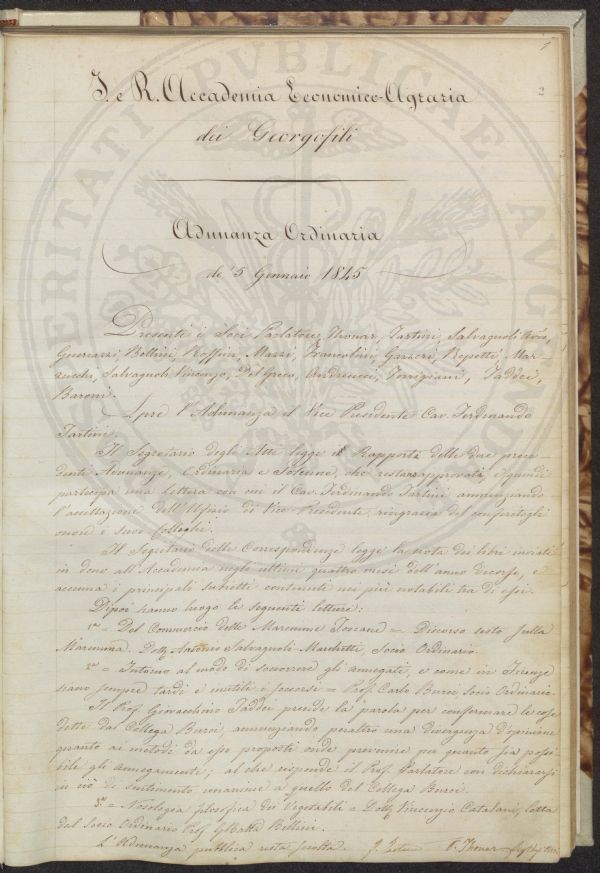 2
I. e R. Accademia Economico-Agraria
dei Georgofili
Adunanza Ordinaria
de' 5 Gennaio 1845
Presenti i Soci Parlatore, Thouar, Tartini, Salvagnoli
Guerrazzi, Bellini, Roffini, Mazzi, Francolini, Gazzeri, Repetti, Mar-
zucchi, Salvagnoli Vincenzo, Del Greco, Andreucci, Inrigiani, Taddei,
Baroni.
Apre l'Adunanza il Vice Presidente Cav. Ferdinando
Tartini.
Il Segretario degli Atti legge il Rapporto delle due prece-
denti Adunanze, Ordinaria e Solenne, che restan approvati, e quindi
partecipa una lettera con cui il Cav. Ferdinando Tartini annunziando
l'accettazione dell'Ufizio di Vice-Presidente, ringrazia del compartitogli
onore i suoi Colleghi.
Il Segretario delle Corrispondenze legge la nota dei libri inviati
in dono all'Accademia negli ultimi quattro mesi dell'anno decorso, e
accenna i principali subietti contenuti nei più notabili tra di essi.
Dipoi hanno luogo le seguenti letture:
1ª = Del Commercio delle Maremme Toscane = Discorso sesto sulla
Maremma. Dott. Antonio Salvagnoli Marchetti, Socio Ordinario.
2ª = Intorno al modo di soccorrere gli annegati, e come in Firenze
siano sempre tardi e inutili i soccorsi = Prof. Carlo Burci, Socio Ordinario.
Il Prof. Gioacchino Taddei prende la parola per confermare le cose
dette dal Collega Burci, annunziando peraltro una divergenza d'opinione
quanto ai metodi da esso proposti onde prevenire per quanto sia possi-
bile gli annegamenti; al che risponde il Prof. Parlatore con dichiararsi
in ciò di sentimento unanime a quello del Collega Burci.
3ª = Nosologia filosofica dei Vegetabili = Dott. Vincenzio Catalani, letta
dal Socio Ordinario Prof. G. Batta Bellini.
L'Adunanza pubblica resta sciolta. P. Thouar